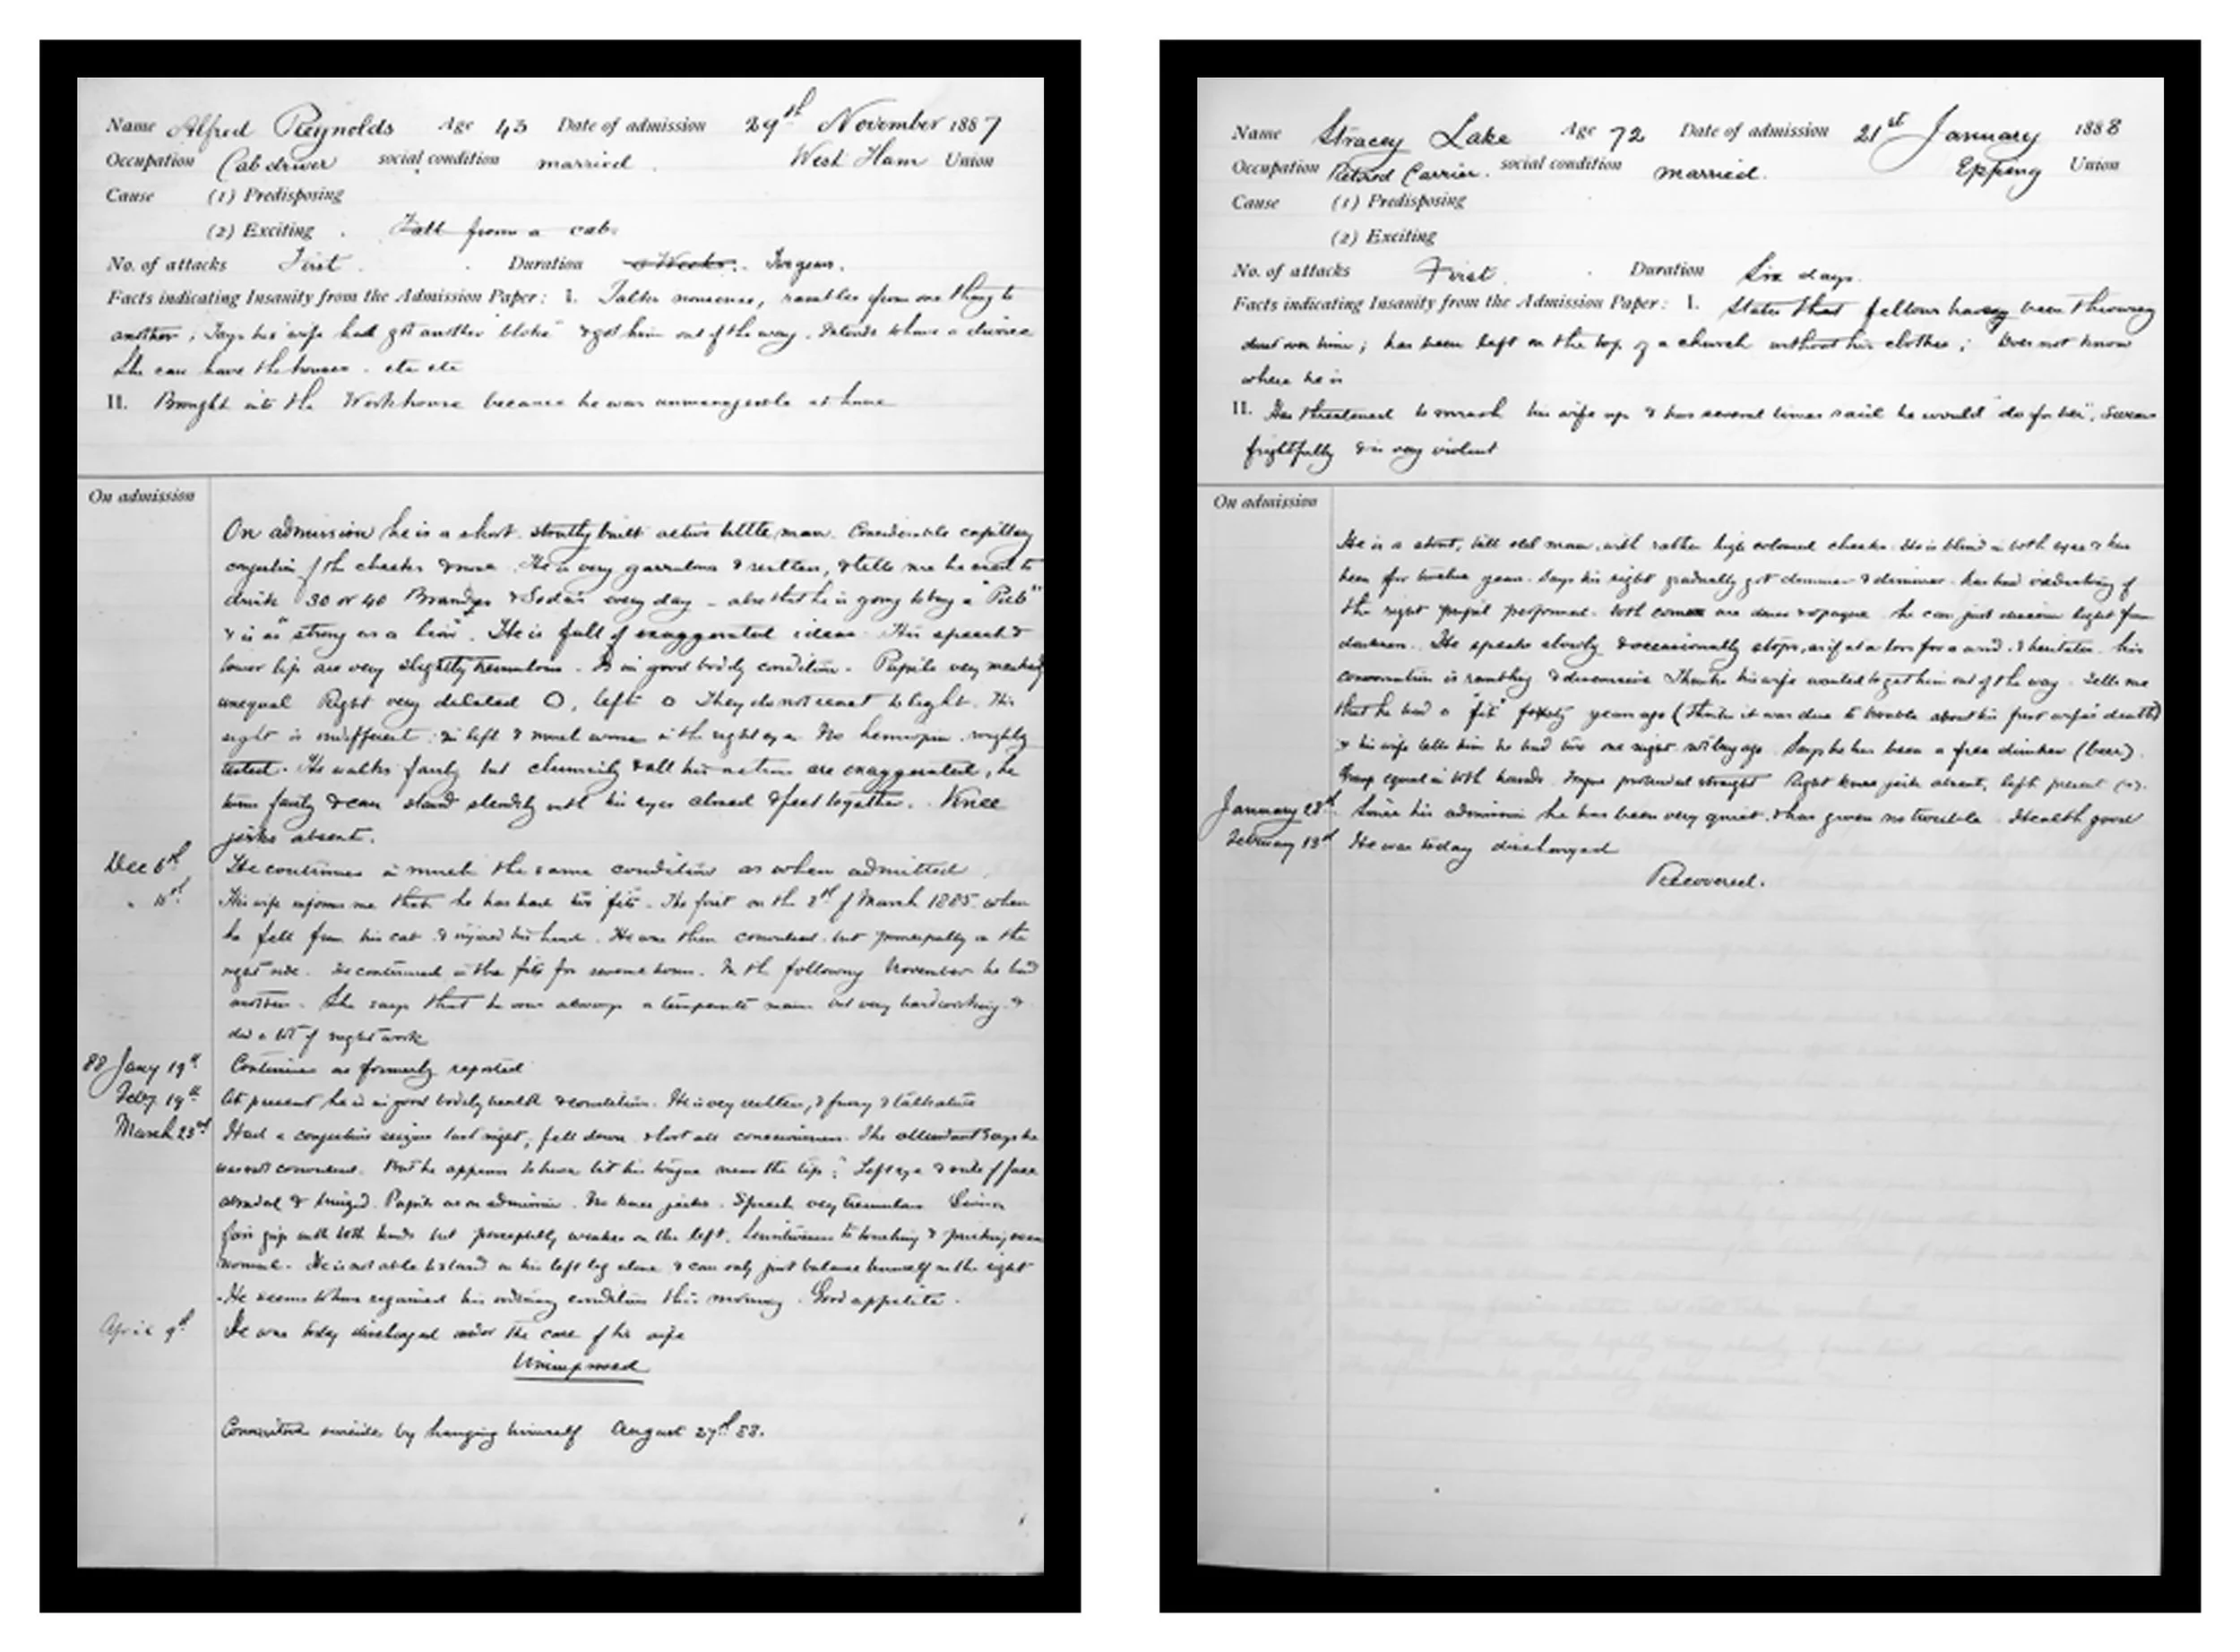 Name Alfred Reynolds Age 43 Date of admission 29th November 1887
Occupation Cab driver social condition married West Ham Union
Cause (1) Predisposing
(2) Exciting Fall from a cab.
No. of attacks First Duration Two years.
Facts indicating Insanity from the Admission Paper: I. Talks nonsense, rambles from one thing to
another; Says his wife had got another "bloke" & got him out of the way. Intends to have a divorce
She can have the houses. etc etc
II. Brought into the Workhouse because he was unmanageable at home
On admission
On admission he is a short stoutly built active little man. Considerable capillary
congestion of the cheeks & nose. He is very garrulous & restless, & tells me he used to
drink 30 or 40 Brandys & Sodas every day - also that he is going to buy a "Pub"
& is as "strong as a lion". He is full of exaggerated ideas. His speech &
lower lip are very slightly tremulous. Is in good bodily condition. Pupils very markedly
unequal Right very dilated O, left o They do not react to light. His
sight is indifferent in left & much worse in the right eye. No roughly
tested. He walks fairly but clumsily & all his actions are exaggerated, he
turns fairly & can stand steadily with his eyes closed & feet together. Knee
jerks absent.
Dec 6th He continues in much the same condition as when admitted
His wife informs me that he has had two fits. The first on the of March 1885 when
he fell from his cab & injured his head. He was then convulsed but principally on the
right side. He continued in the fits for some hours. In the following November he had
another. She says that he was always a temperate man but very hardworking &
did a lot of night work
88 Jany 19th Continues as formerly reported
Feby 19th At present he is in good bodily health & condition. He is very restless, & funny & talkative
March 23rd Had a congestive seizure last night, fell down & lost all consciousness. The attendant says he
was not convulsed. But he appears to have bit his tongue near the tip; Left eye & side of face
abraded & bruised. Pupils as on admission. No knee jerks. Speech very tremulous
fair grip with both hands but perceptibly weaker on the left. Sensitiveness to touching & pricking seem
normal. He is not able to stand on his left leg alone & can only just balance himself on the right
He seems to have regained his ordinary condition this morning. Good appetite.
April 9th He was today discharged under the care of his wife
Unimproved
Committed suicide by hanging himself August 27th 88.
Name Stracey Lake Age 72 Date of admission 21st January 1888
Occupation Retired Carrier. social condition married. Epping Union
Cause (1) Predisposing
(2) Exciting
No. of attacks First Duration Six days.
Facts indicating Insanity from the Admission Paper: I. States that fellows have been throwing
dust over him; has been left on the top of a church without his clothes; Does not know
where he is
II. Has threatened to smash his wife up & has several times said he would "do for her". Swears
frightfully & is very violent
On admission
He is a stout, tall old man, with rather high coloured cheeks. He is blind in both eyes & has
been for twelve years. Says his sight gradually got dimmer & dimmer. has had of
the right pupil performed. both are dense & opaque he can just discern light from
darkness. He speaks slowly & occasionally stops, as if at a loss for a word, & hesitates. his
conversation is rambling & discursive Thinks his wife wanted to get him out of the way. Tells me
that he had a "fit" years ago (thinks it was due to trouble about his first wife's death)
& his wife tells him he had two one night not long ago. Says he has been a free drinker (beer).
Grasp equal in both hands. Tongue protruded straight Right knee jerk absent, left present
January 28th Since his admission he has been very quiet & has given no trouble. Health good
February 13th He was today discharged
Recovered.